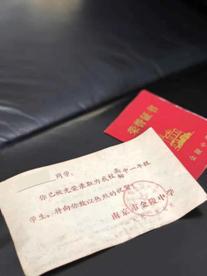 荣誉证书
金陵中
同学：
你已被光荣录取为我校高中一年级
学生。特向你致以热烈的祝贺！
南京市金陵中学